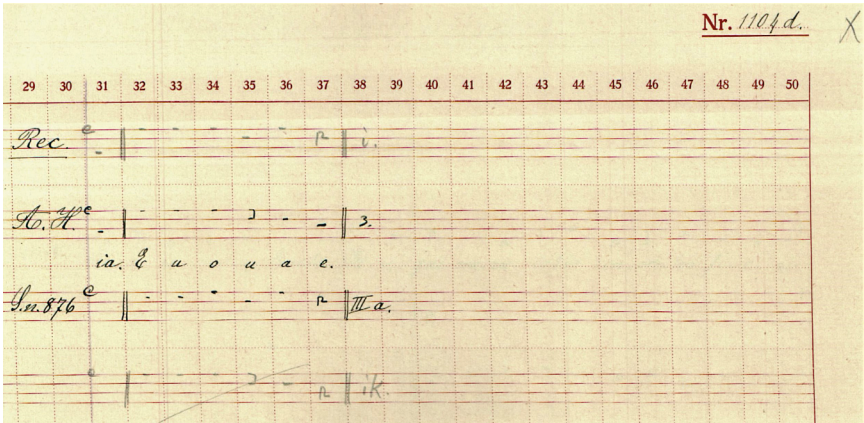 Nr. 1104 d. X
29 30 31 32 33 34 35 36 37 38 39 40 41 42 43 44 45 46 47 48 49 50
Rec. c i.
A. H. c 3.
ia. E u o u a e.
S.n. 876 c III a.
c ik.